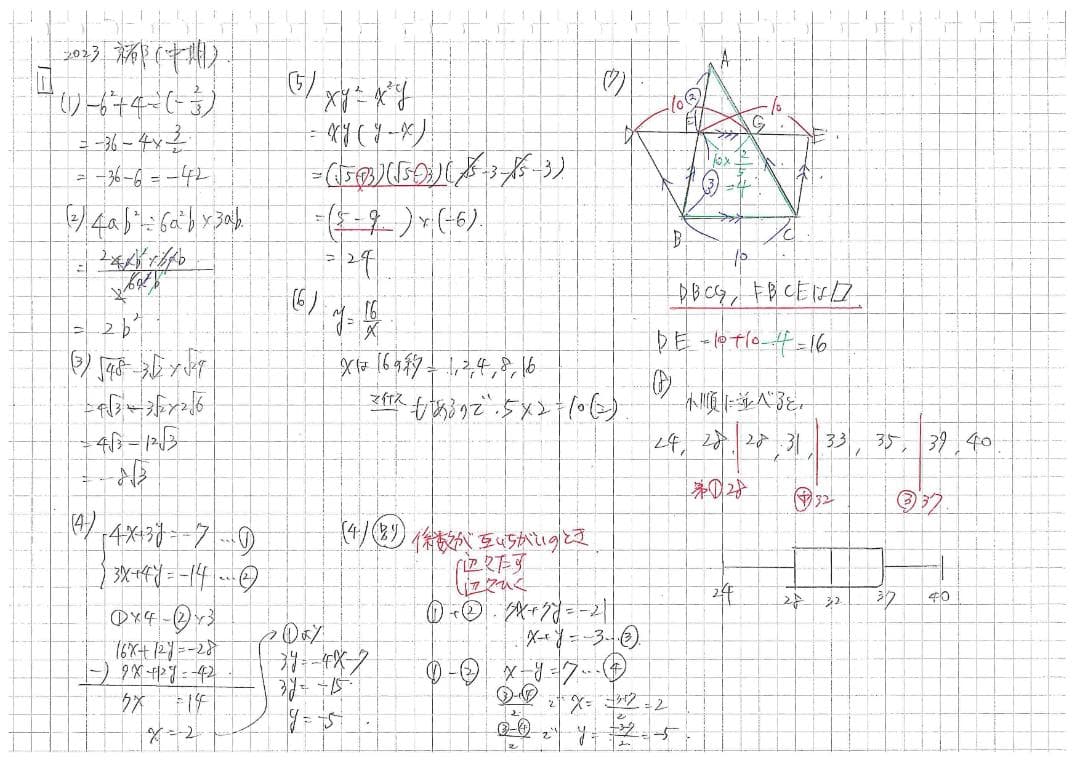 2023 京都(中期)
1
(1) -6²+4÷(-2/3)
= -36-4×3/2
= -36-6=-42
(2) 4ab²÷6a²b×3ab
= 4ab²×3ab/6a²b
= 2b²
(3) √48-3√2×√24
=4√3-3√2×2√6
=4√3-12√3
=-8√3
(4) 4x+3y=-7 …①
3x+4y=-14 …②
①×4-②×3
16x+12y=-28
-) 9x+12y=-42
7x =14
x=2
①より
3y=-4x-7
3y=-15
y=-5
(5) xy²-x²y
=xy(y-x)
=(√5+3)(√5-3)(√5-3-√5-3)
=(5-9)×(-6)
=24
(6) y=16/x
xは16の約=1,2,4,8,16
マイナスもあるので 5×2=10(こ)
(4) 別 係数が互いちがいのとき
辺々たす
辺々ひく
①+② 7x+7y=-21
x+y=-3…③
①-② x-y=7…④
③+④/2 で x=-3+7/2=2
③-④/2 で y=-3-7/2=-5
(7)
A
② 10 10
D F G E
10×2/5
③ =4
B C
10
DBCG, FBCEは▱
DE=10+10-4=16
(8) 小順に並べると、
24, 28, 28, 31, 33, 35, 39, 40
第① 28 中 32 ③ 37
24 28 32 37 40